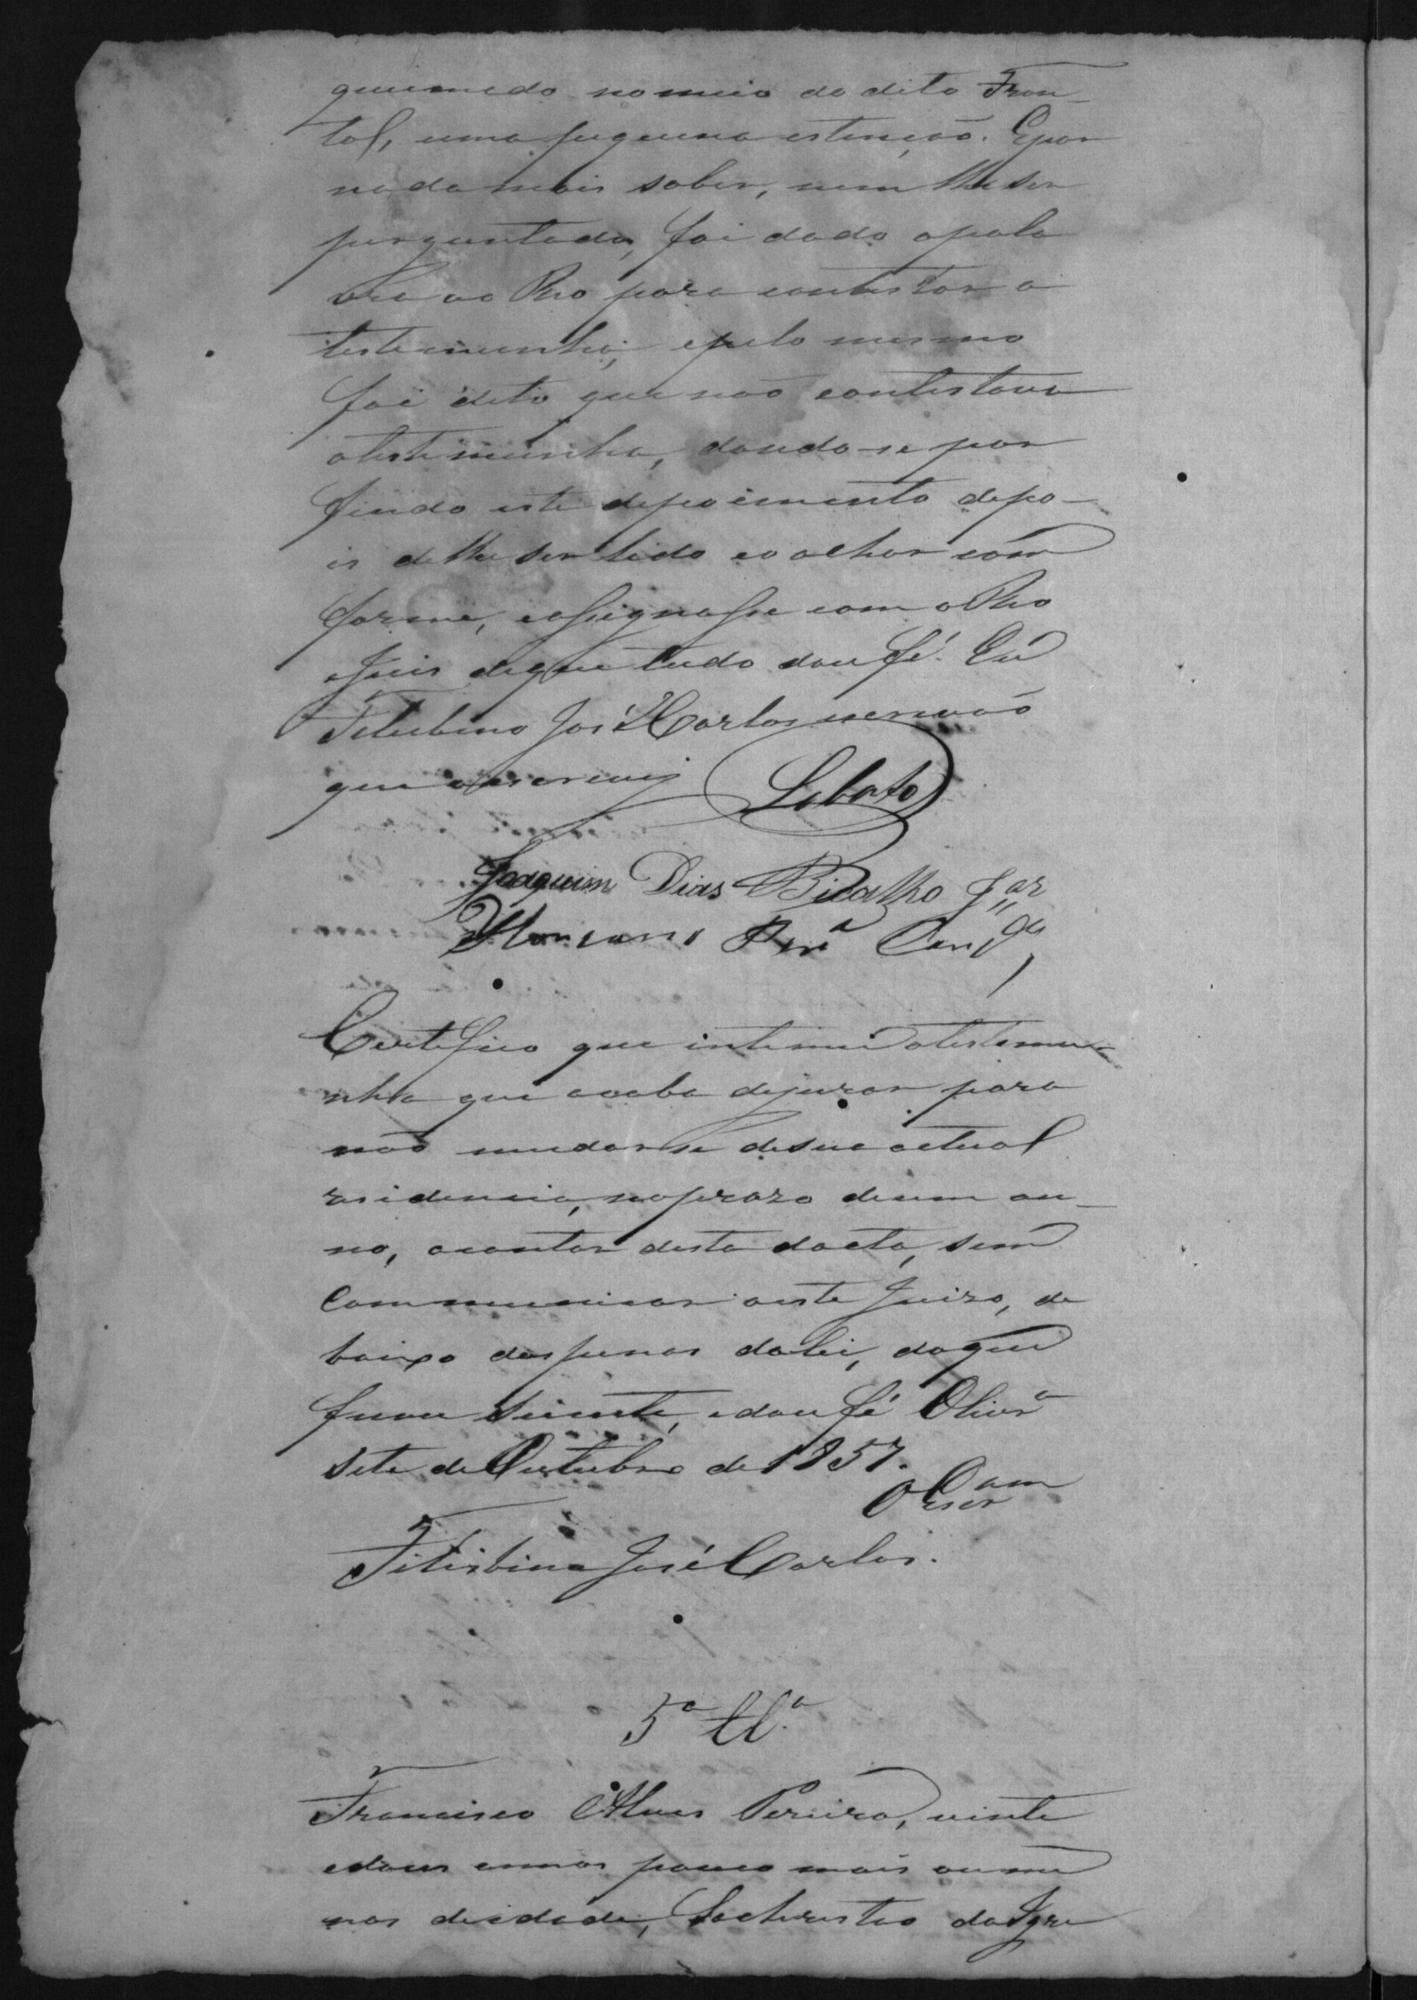 queimado no meio do dito Fron-
tal, uma piquena estenção. E por
nada mais saber, nem lhe ser
perguntado, foi dado apala
vra ao Reo para contestar a
testemunha, epelo mesmo
foi dito que não contestava
atestemunha, dando-se por
findo este depoimento depo-
is de lhe ser lido eo achar com
forme, eassignasse com o Reo
oJuis deque tudo dou fé. Eu
Titubino José Carlos escrivão
que oescrevij Lobato
Joaquim Dias Bicalho Jor
Honorio Perª
Certefico que intimei atestemu-
nha que acaba dejurar para
não mudarse desua actual
residencia, noprazo deum an-
no, acontar desta dacta, sem
communicar aeste Juizo, de
baixo daspenas dalei, doque
ficou sciente, edou fé Olivrª
sete de Outubro de 1857.
O Escram
Titubino José Carlos.
5ª Tª
Francisco Alves Pereira, vinte
edous annos pouco mais oume
nos deidade, Sachristão daIgre